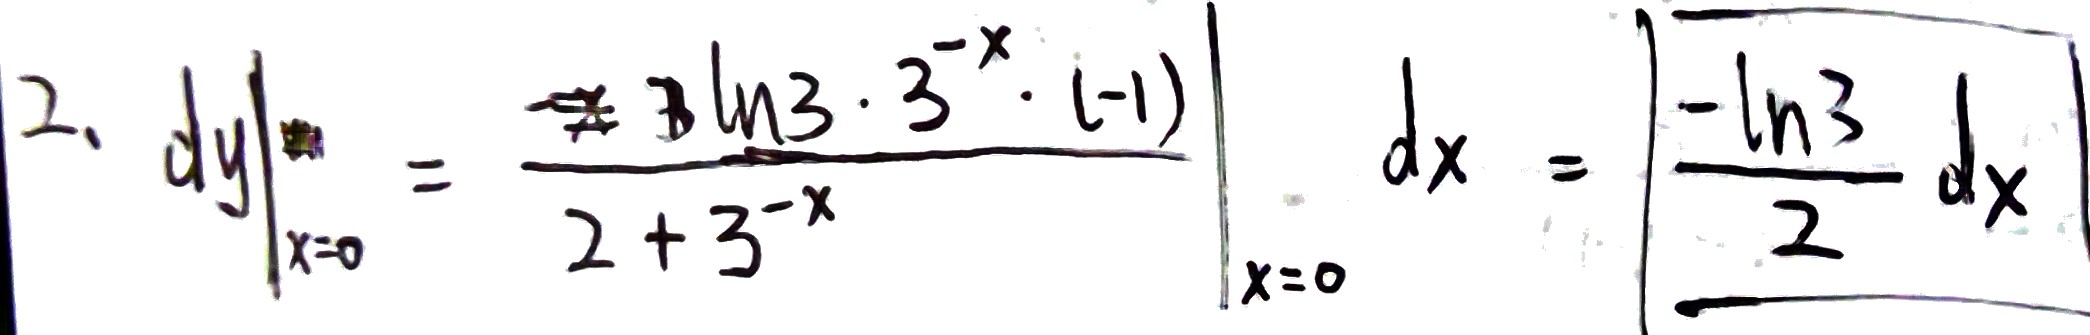 2. dy|x=0 = (ln3 · 3^-x · (-1)) / (2 + 3^-x) |x=0 dx = (-ln3 / 2) dx